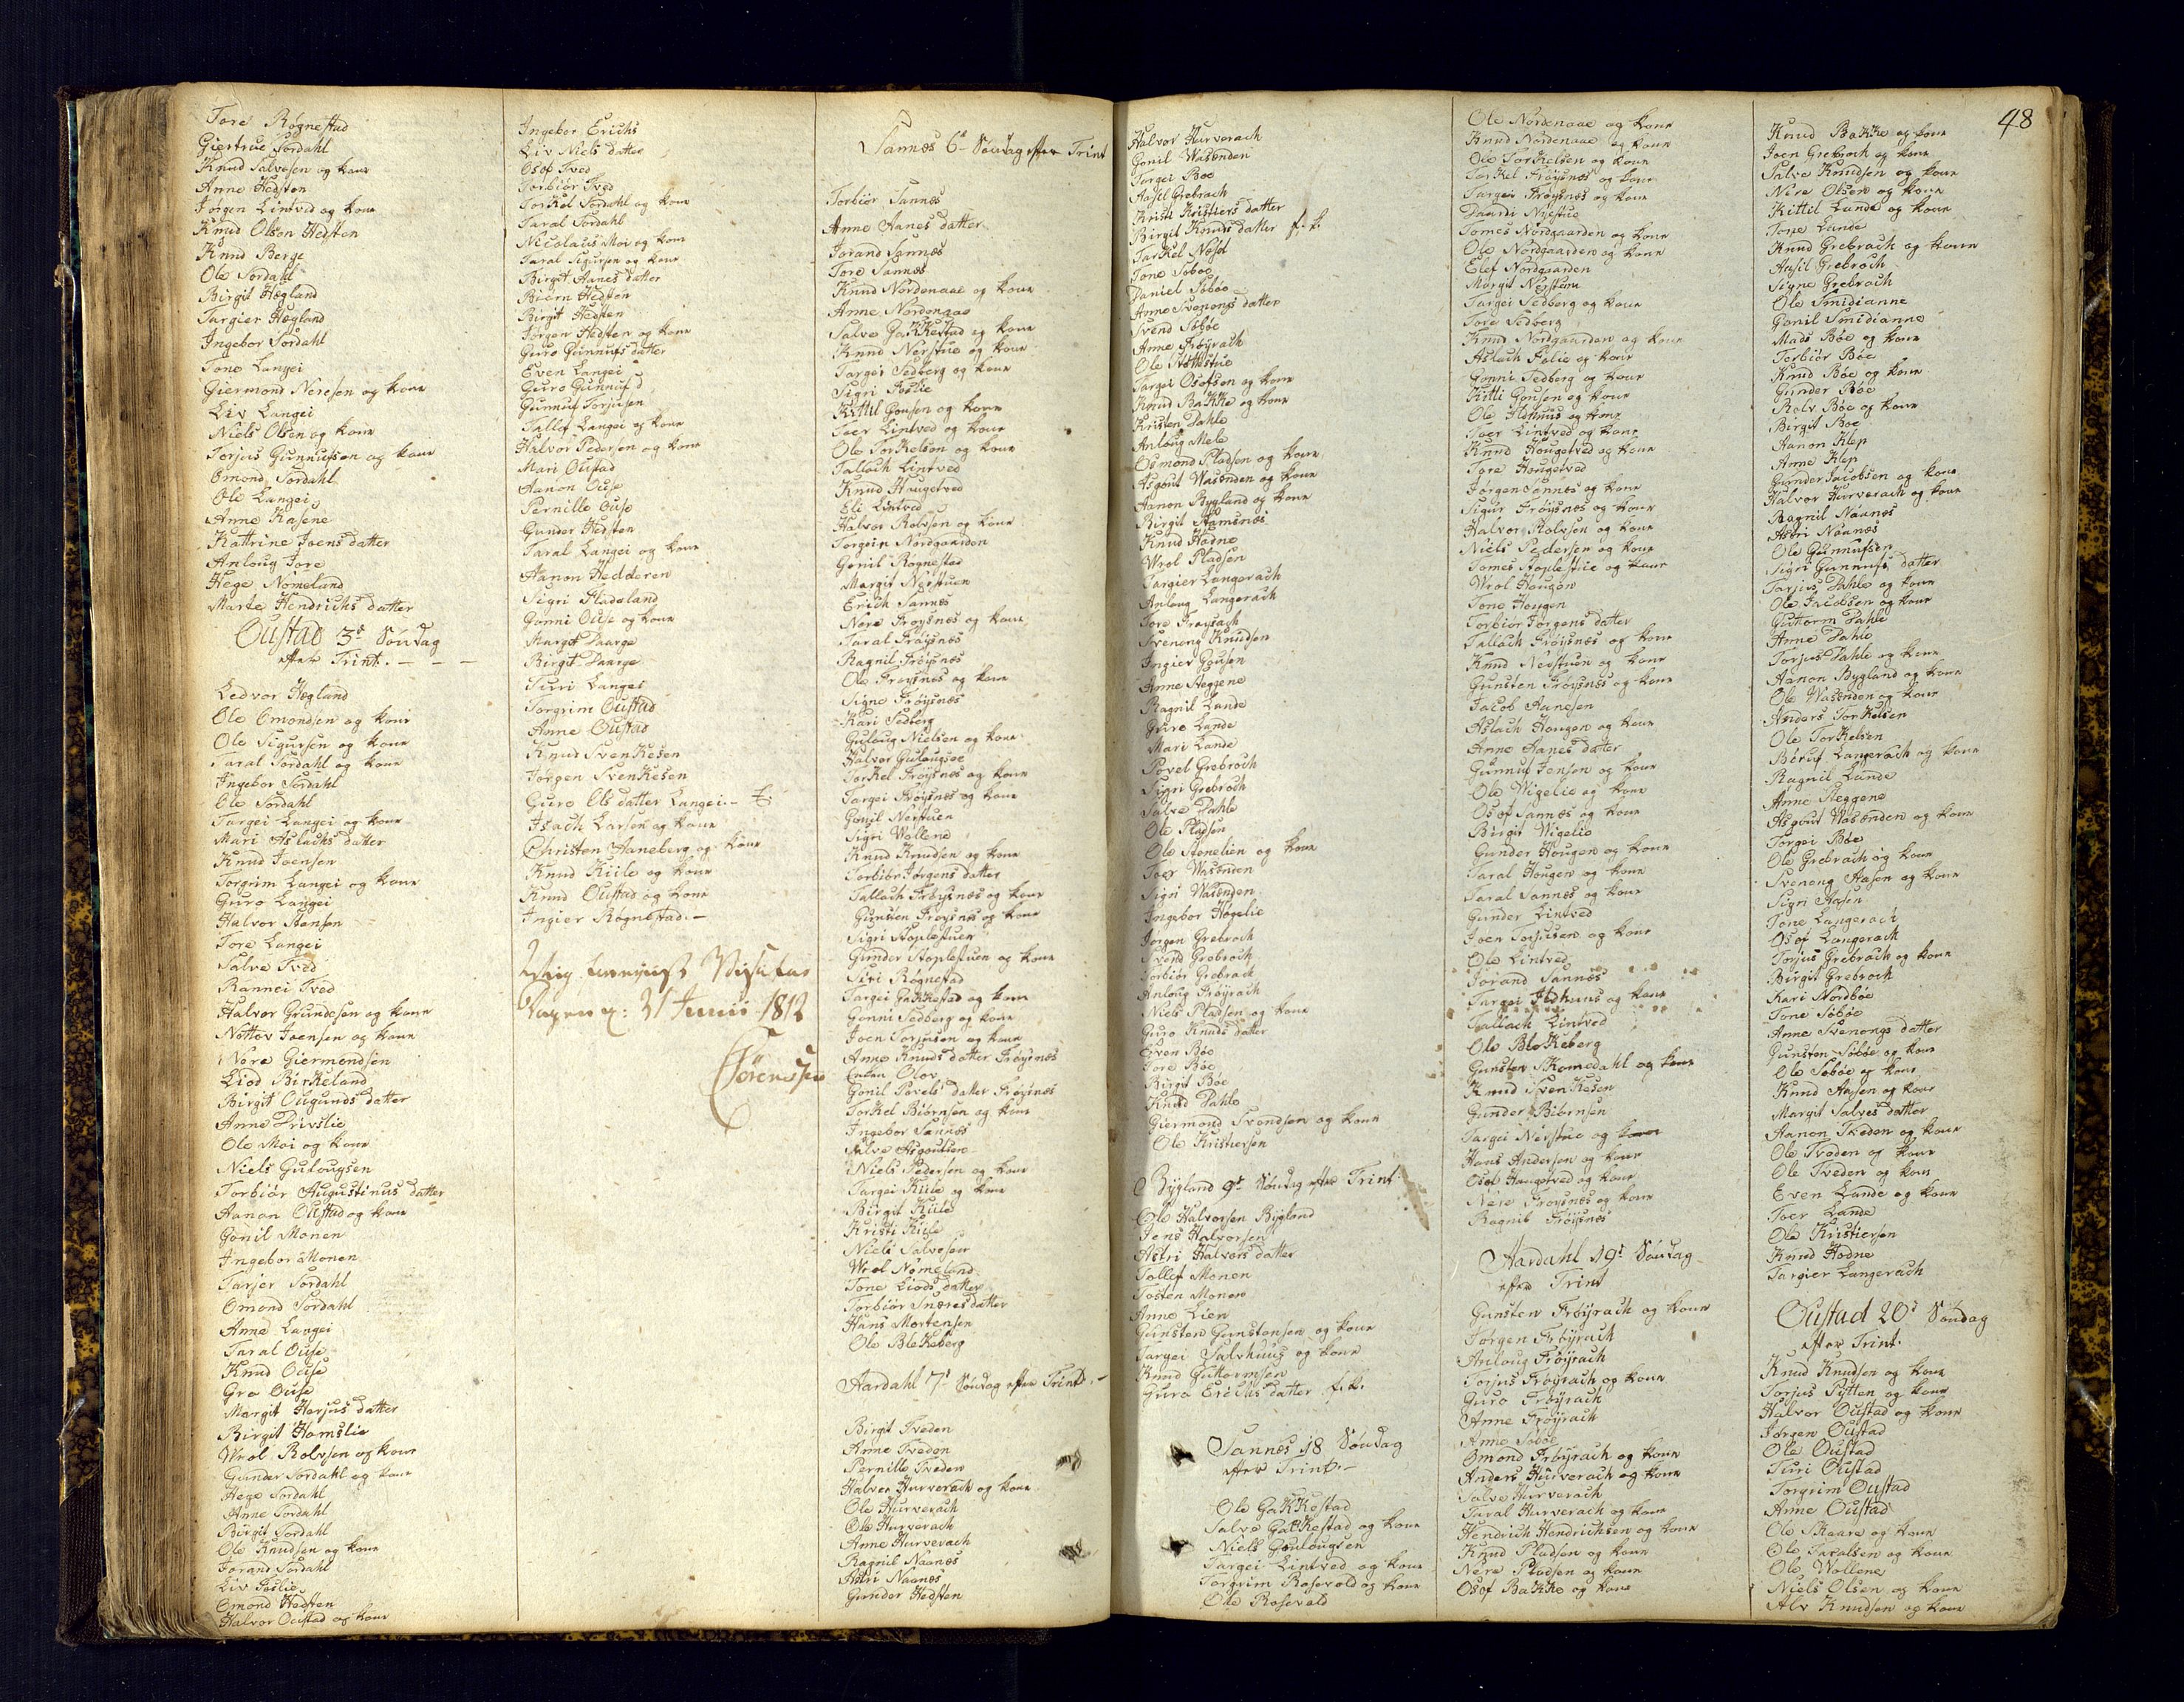 Tore Røgnestad
Giertrue Sordahl
Knud Salvesen og kone
Anne Hedsten
Jørgen Lintved og kone
Knud Olsen Hedsten
Knud Berge
Ole Sordahl
Birgit Hægland
Targier Hægland
Ingebor Sordahl
Tone Langei
Giermond Neresen og kone
Liv Langei
Niels Olsen og kone
Torjus Gunnufsen og kone
Omond Sordahl
Ole Langei
Anne Kasene
Kattrine Joens datter
Anloug Jore
Hege Nomeland
Marte Hendrichs datter
Oustad 3d Søndag
efter Trint. - - -
Ledvor Hægland
Ole Omondsen og kone
Ole Sigursen og kone
Taral Sordahl og kone
Ingebor Sordahl
Ole Sordahl
Targei Langei og kone
Mari Aslachs datter
Knud Joensen
Torgrim Langei og kone
Guro Langei
Halvor Hansen
Tore Langei
Salve Tved
Rannei Tved
Halvor Grundesen og kone
Nottov Joensen og kone
Nere Giermondsen
Liod Birkeland
Birgit Ougunds datter
Anne Privslie
Ole Moi og kone
Niels Gulougsen
Torbiør Augustinus datter
Aanon Oustad og kone
Gonil Monen
Ingebor Monen
Tarjer Sordahl
Omond Sordahl
Anne Langei
Taral Ouse
Knud Ouse
Gro Ouse
Margit Harjus datter
Birgit Homslie
Wrol Rolvsen og kone
Gunder Sordahl og kone
Hege Sordahl
Anne Sordahl
Birgit Sordahl
Ole Knudsen og kone
Jorand Sordahl
Liv Foslie
Omond Hedsten
Halvor Oustad og kone
Ingebor Erichs
Liv Niels datter
Osof Tved
Torbiør Tved
Torkel Sordahl og kone
Taral Sordahl
Nicolaus Moi og kone
Taral Sigursen og kone
Birgit Aanes datter
Biørn Hedsten
Birgit Hedsten
Jørgen Hedsten og kone
Guro Gunnufs datter
Even Langei
Guro Gunnuf d
Gunnuf Torjusen
Tallef Langei og kone
Halvor Pedersen og kone
Mari Oustad
Aanon Ouse
Pernille Ouse
Gunder Hedsten
Taral Langei og kone
Aanon Hedderen
Sigri Fladeland
Gonni Ouse og kone
Margit Daarge
Birgit Daarge
Turi Langei
Torgrim Oustad
Anne Oustad
Knud Svenkesen
Jørgen Svenkesen
Guro Ols datter Langei. -
Isach Larsen og kone
Christen Haneberg og kone
Knud Kiile og kone
Knud Oustad og kone
Ingier Røgnestad. -
21 Junii 1812
Sörenssen
Sannes 6te Søndag efter Trint
Torbiør Sannes
Anne Aanes datter
Jorand Sannes
Tore Sannes
Knud Nordenaae og kone
Anne Nordenaae
Salve Gakkestad og kone
Knud Nerstue og kone
Targei Sedberg og kone
Sigri Foslie
Kittil Gonsen og kone
Toer Lintved og kone
Ole Torkelsen og kone
Tallach Lintved
Knud Hougetved
Eli Lintved
Halvor Rolvsen og kone
Torgein Nordgaarden
Gonil Rognestad
Margit Nerstuen
Erich Sannes
Nere Frøysnes og kone
Taral Frøysnes
Ragnil Frøysnes
Ole Frøysnes og kone
Signe Frøysnes
Kari Sedberg
Guloug Nielsen og kone
Halvor Gulougsee
Torkel Frøysnes og kone
Targei Frøysnes og kone
Gonil Nerstuen
Sigri Wollene
Knud Knudsen og kone
Torbiør Jørgens datter
Tallach Frøysnes og kone
Gunsten Frøysnes og kone
Sigri Stoplestuen
Gunder Stoplestuen og kone
Siri Røgnestad
Targei Gakkestad og kone
Gonni Sedberg og kone
Joen Torjusen og kone
Anne Knuds datter Frøysnes
Enken Olov
Gonil Povels datter Frøysnes
Torkel Biørnsen og kone
Ingebor Sannes
Salve Asgoutsen
Niels Pedersen og kone
Targei Kiile og kone
Birgit Kiile
Kristi Kiile
Niels Salvesen
Wrol Nomeland
Tone Liods datter
Torbiør Sneres datter
Hans Mortensen
Ole Blekeberg
Aardahl 7de Søndag efter Trint. -
Birgit Tveden
Anne Tveden
Pernille Tveden
Halvor Hurverach og kone
Ole Hurverach
Ole Hurverach
Anne Hurverach
Ragnil Naanes
Astri Naanes
Gunder Hedsten
48
Halvor Hurverach
Gonil Wasenden
Targei Boe
Aasil Grebrach
Kristi Kristiers datter
Birgit Knuds datter f. k.
Tarkel Nosel
Tone Søboe
Daniel Søbøe
Anne Svenongs datter
Svend Søbøe
Anne Frøyrach
Targei Osofsen og kone
Knud Bakke og kone
Kristen Dahle
Anloug Mele
Osmond Pladsen og kone
Asgout Wasenden og kone
Aanon Bygland og kone
Birgit Stamsnes
Knud Hodne
Wrol Pladsen
Targier Langerach
Anloug Langerach
Tore Frøyrach
Svenong Knudsen
Ingier Gousen
Anne Heggene
Ragnil Lande
Guro Lande
Mari Lande
Povel Grebroch
Sigri Grebroch
Salve Dahle
Ole Pladsen
Ole Stenelien og kone
Toer Wasenden
Sigri Wasenden
Ingebor Høgelie
Jørgen Grebroch
Svend Grebroch
Torbiør Grebrach
Anloug Frøyrach
Niels Pladsen og kone
Guro Knuds datter
Even Bøe
Tore Bøe
Birgit Bøe
Knud Dahle
Giermond Svendsen og kone
Ole Kristiersen
Bygland 9de Søndag efter Trint
Ole Halvorsen Bygland
Jens Halvorsen
Astri Halvors datter
Tollef Monen
Tosten Monen
Anne Lien
Gunsten Gunstensen og kone
Targei Salvhuus og kone
Knud Guttormsen
Guro Erichs datter f.k.
Sannes 18 Søndag
efter Trint. -
Ole Gakkestad
Salve Gakkestad og kone
Niels Goulougsen
Targei Lintved og kone
Torgrim Rosevald og kone
Ole Rosevald
Ole Nordenaae og kone
Knud Nordenaae og kone
Ole Torkelsen og kone
Torkel Frøysnes og kone
Targei Frøysnes og kone
Daardi Nystue
Tomes Nordgaarden og kone
Ole Nordgaarden og kone
Elef Nordgaarden
Margit Nerstuen
Targei Sedberg og kone
Tore Sedberg
Knud Nordgaarden og kone
Aslach Felie og kone
Gonni Sedberg og kone
Kitti Gonsen og kone
Ole Hedhuus og kone
Toer Lintved og kone
Knud Hougetved og kone
Tore Hougetved
Jørgen Sannes og kone
Sigur Frøysnes og kone
Halvor Rolvsen og kone
Niels Pedersen og kone
Tomes Stoplestue og kone
Wrol Hougen
Tone Hougen
Torbiør Jørgens datter
Tallach Frøysnes og kone
Knud Nerstuen og kone
Gunsten Frøysnes og kone
Jacob Aanesen
Aslach Hougen og kone
Anne Aanes datter
Gunnuf Jensen og kone
Ole Wigelie og kone
Osof Sannes og kone
Birgit Wigelie
Gunder Hougen og kone
Taral Hougen og kone
Taral Sannes og kone
Gunder Lintved
Joen Torjusen og kone
Ole Lintved
Jorand Sannes
Targei Hedhuus og kone
Tallach Lintved
Ole Blekeberg
Gunsten Skomedahl og kone
Knud Svenkesen
Gunder Biørnsen
Targei Nerstue og kone
Hans Andersen og kone
Osof Hougetved og kone
Nere Frøysnes og kone
Ragnil Frøysnes
Aardahl 19de Søndag
efter Trint
Gunsten Frøyrach og kone
Jørgen Frøyrach
Anloug Frøyrach
Torjus Frøyrach og kone
Guro Frøyrach
Anne Frøyrach
Anne Søbøe
Omond Frøyrach og kone
Anders Hurverach og kone
Salve Hurverach
Taral Hurverach og kone
Hendrich Hendrichsen og kone
Knud Pladsen og kone
Nere Pladsen og kone
Osof Bakke og kone
Knud Bakke og kone
Joen Grebroch og kone
Salve Knudsen og kone
Nere Olsen og kone
Kittil Lande og kone
Tore Lande
Knud Grebrach og kone
Aasil Grebroch
Signe Grebroch
Ole Smidianne
Gonil Smidianne
Mads Bøe og kone
Torbiør Bøe
Knud Bøe og kone
Gunder Bøe
Rolv Bøe og kone
Birgit Boe
Aanon Klep
Anne Klep
Gunder Jacobsen og kone
Halvor Hurverach og kone
Ragnil Naanes
Astri Naanes
Ole Gunnufsen
Sigri Gunnufs datter
Tarjus Dahle og kone
Ole Jacobsen og kone
Guttorm Dahle
Anne Dahle
Torjus Dahle og kone
Aanon Bygland og kone
Ole Wasenden og kone
Anders Torkelsen
Ole Torkelsen
Beruf Langerach og kone
Ragnil Lande
Anne Heggene
Asgout Wasenden og kone
Torgei Bøe
Ole Grebrach og kone
Svenong Aasen og kone
Sigri Aasen
Tone Langerach
Osof Langerach
Torjus Grebroch og kone
Birgit Grebroch
Kari Nordbøe
Tone Søbøe
Anne Svenongs datter
Gunsten Søbøe og kone
Ole Søbøe og kone
Knud Aasen og kone
Margit Salves datter
Aanon Tveden og kone
Ole Tveden og kone
Ole Tveden og kone
Even Lande og kone
Toer Lande
Ole Kristiersen
Knud Hodne
Targier Langerach
Oustad 20de Søndag
efter Trint.
Knud Knudsen og kone
Torjus Pytten og kone
Halvor Oustad og kone
Jørgen Oustad
Ole Oustad
Turi Oustad
Torgrim Oustad
Anne Oustad
Ole Skaare og kone
Ole Taralsen og kone
Ole Wollene
Niels Olsen og kone
Alv Knudsen og kone